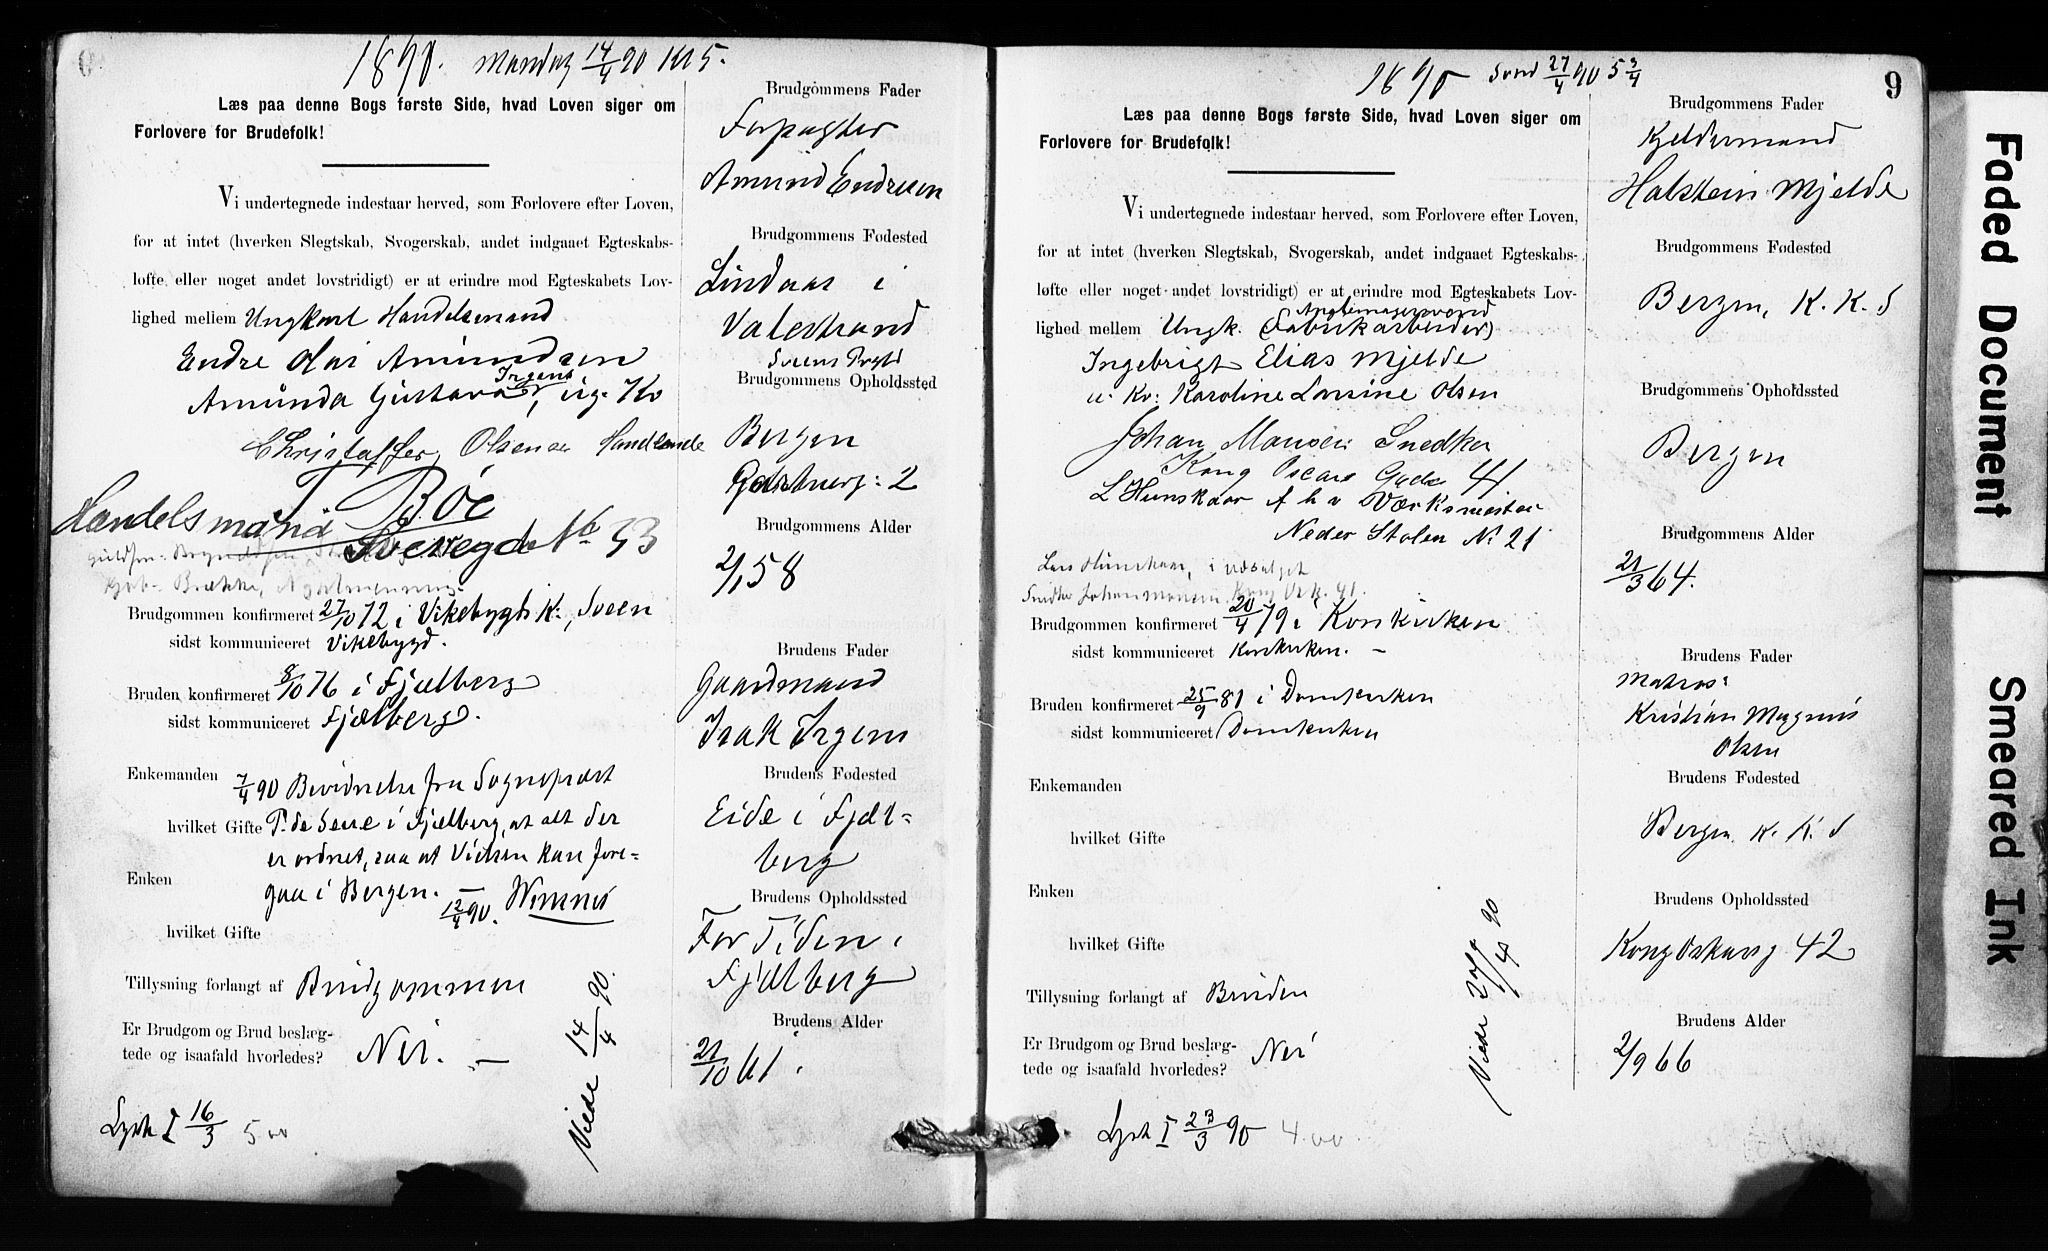 1890. Mandag 14/4 90 Kl 5.
Læs paa denne Bogs første Side, hvad Loven siger om
Forlovere for Brudefolk!
Vi undertegnede indestaar herved, som Forlovere efter Loven,
for at intet (hverken Slegtskab, Svogerskab, andet indgaaet Egteskabs-
løfte eller noget andet lovstridigt) er at erindre mod Egteskabets Lov-
lighed mellem Ungkarl Handelsmand
Endre Olai Amundsen
Irgens
Amunda Gustava, ug. Kv
Christoffer Olsen Handlende
T Bøe
Handelsmand Sverregde No 33
Brudgommen konfirmeret 27/10 72 i Vikebygds K., Sveen
sidst kommuniceret Vikebygd.
Bruden konfirmeret 8/10 76 i Fjælberg
sidst kommuniceret Fjælberg.
Enkemanden 7/4 90 Bevidnelse fra Sognepræst
hvilket Gifte P. de Seve i Fjælberg, at alt der
er ordnet, saa at Vielsen kan fore-
Enken
gaa i Bergen. —
12/4 90.
hvilket Gifte
Tillysning forlangt af Brudgommen
Er Brudgom og Brud beslæg-
tede og isaafald hvorledes? Nei. —
Viede 14/4 90.
Lyst I 16/3 5 00
Brudgommens Fader
Forpagter
Amund Endresen
Brudgommens Fødested
Lindaas i
Valestrand
Sveens Prgld
Brudgommens Opholdssted
Bergen
2
Brudgommens Alder
2/1 58
Brudens Fader
Gaardmand
Isak Irgens
Brudens Fødested
Eide i Fjæl-
berg
Brudens Opholdssted
For Tiden i
Fjælberg
Brudens Alder
21/10 61.
1890 Sønd 27/4 90 5 3/4
9
Læs paa denne Bogs første Side, hvad Loven siger om
Forlovere for Brudefolk!
Vi undertegnede indestaar herved, som Forlovere efter Loven,
for at intet (hverken Slegtskab, Svogerskab, andet indgaaet Egteskabs-
løfte eller noget andet lovstridigt) er at erindre mod Egteskabets Lov-
lighed mellem Ungk. (Fabrikarbeider)
Ingebrigt Elias Mjelde
u. Kv: Karoline Lovine Olsen
Johan Monsen Snedker
Kong Oscars Gade 41
L Hunskaar Værksmester
Nedre Stølen No 21
Brudgommen konfirmeret 20/4 79 i Korskirken
sidst kommuniceret Korskirken. —
Bruden konfirmeret 25/9 81 i Domkirken
sidst kommuniceret Domkirken
Enkemanden
hvilket Gifte
Enken
hvilket Gifte
Tillysning forlangt af Bruden
Er Brudgom og Brud beslæg-
tede og isaafald hvorledes? Nei
Viede 27/4 90
Lyst I 23/3 90 4.00
Brudgommens Fader
Kjeldermand
Halstein Mjelde
Brudgommens Fødested
Bergen, K. K. S
Brudgommens Opholdssted
Bergen
Brudgommens Alder
21/3 64.
Brudens Fader
Matros:
Kristian Magnus
Olsen
Brudens Fødested
Bergen K. K. S
Brudens Opholdssted
Kong Oskarsg 42
Brudens Alder
2/9 66
Faded Document
Smeared Ink